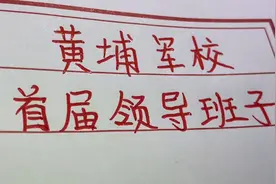 黄埔军校
首届领导班子